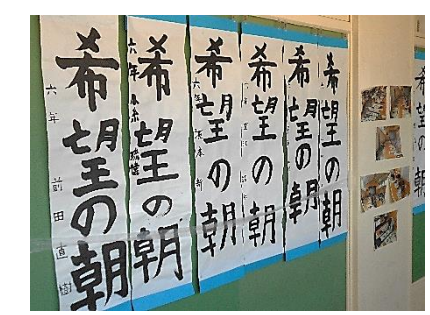 希望の朝
六年 前田直樹
希望の朝
六年
希望の朝
六年
希望の朝
希望の朝
希望の朝